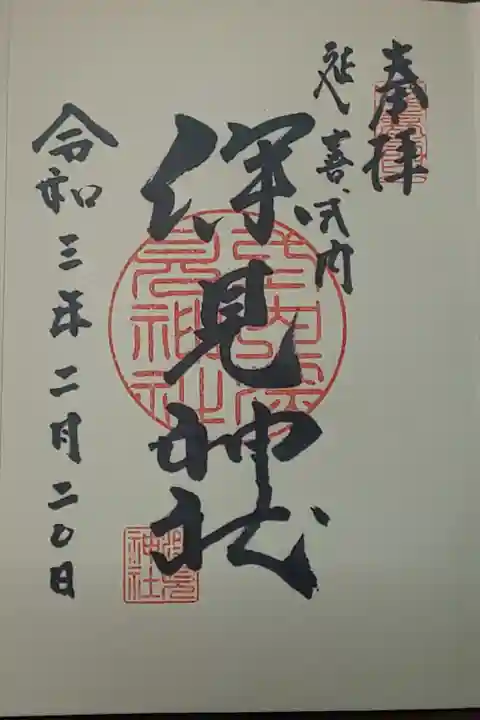 奉拝
延喜式内
深見神社
令和三年二月二〇日
深見
神社